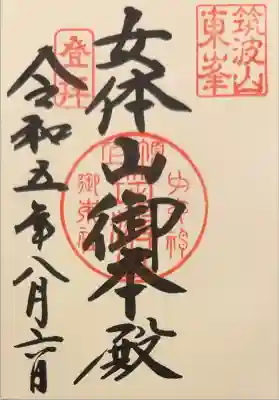 筑波山
東峯
女体山御本殿
登拝
令和五年八月六日